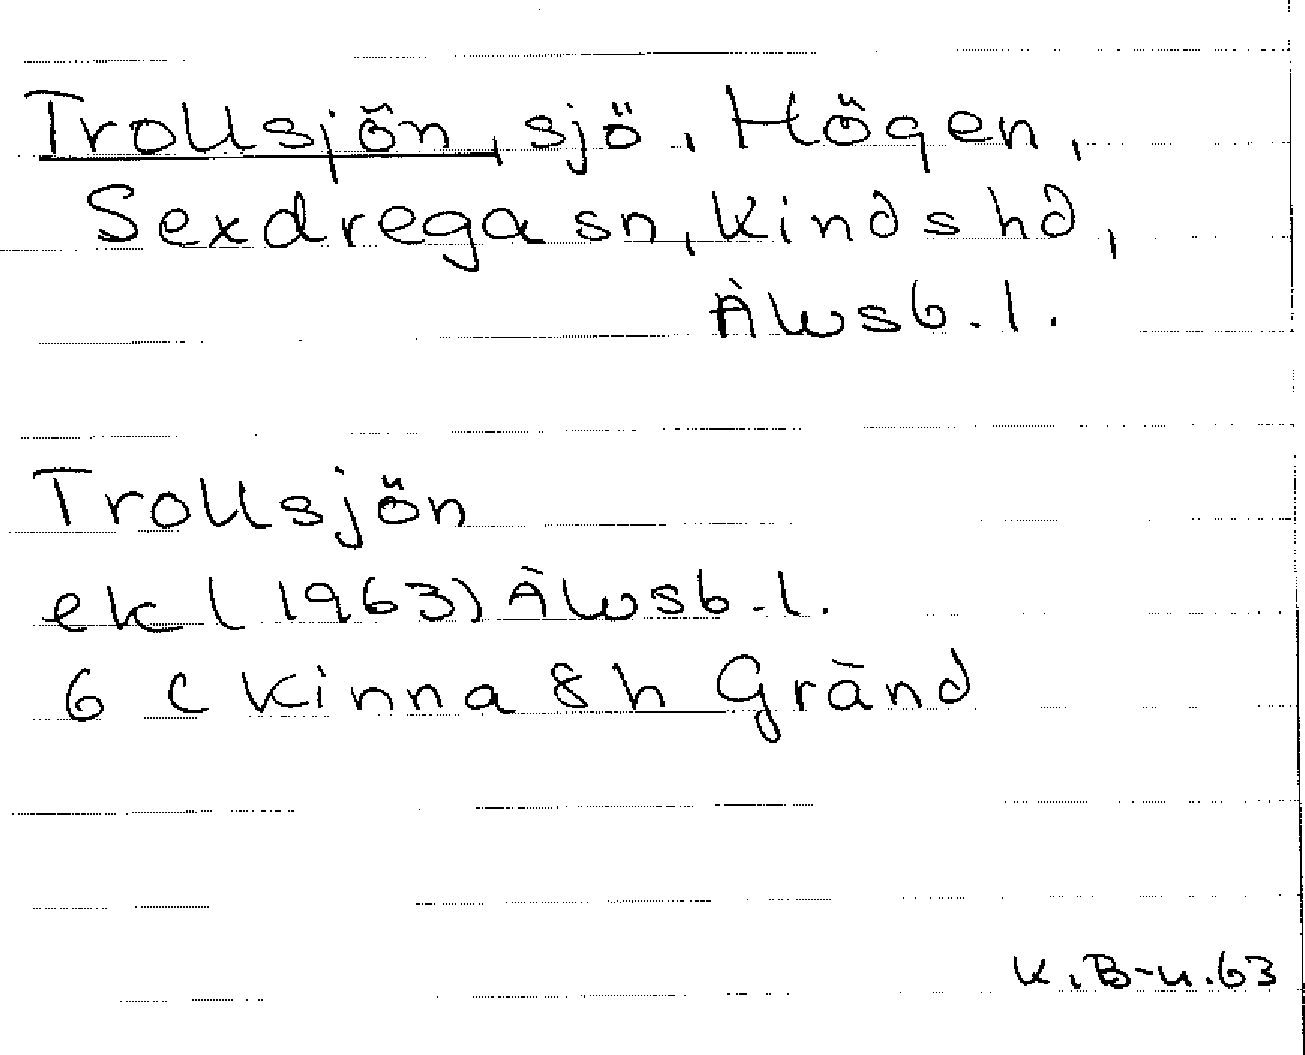 Trollsjön, sjö, Högen,
Sexdrega sn, Kinds hd,
Älvsb. l.
Trollsjön
ek (1963) Älvsb. l.
6 C Kinna 8 h Gränd
K. B-n. 63